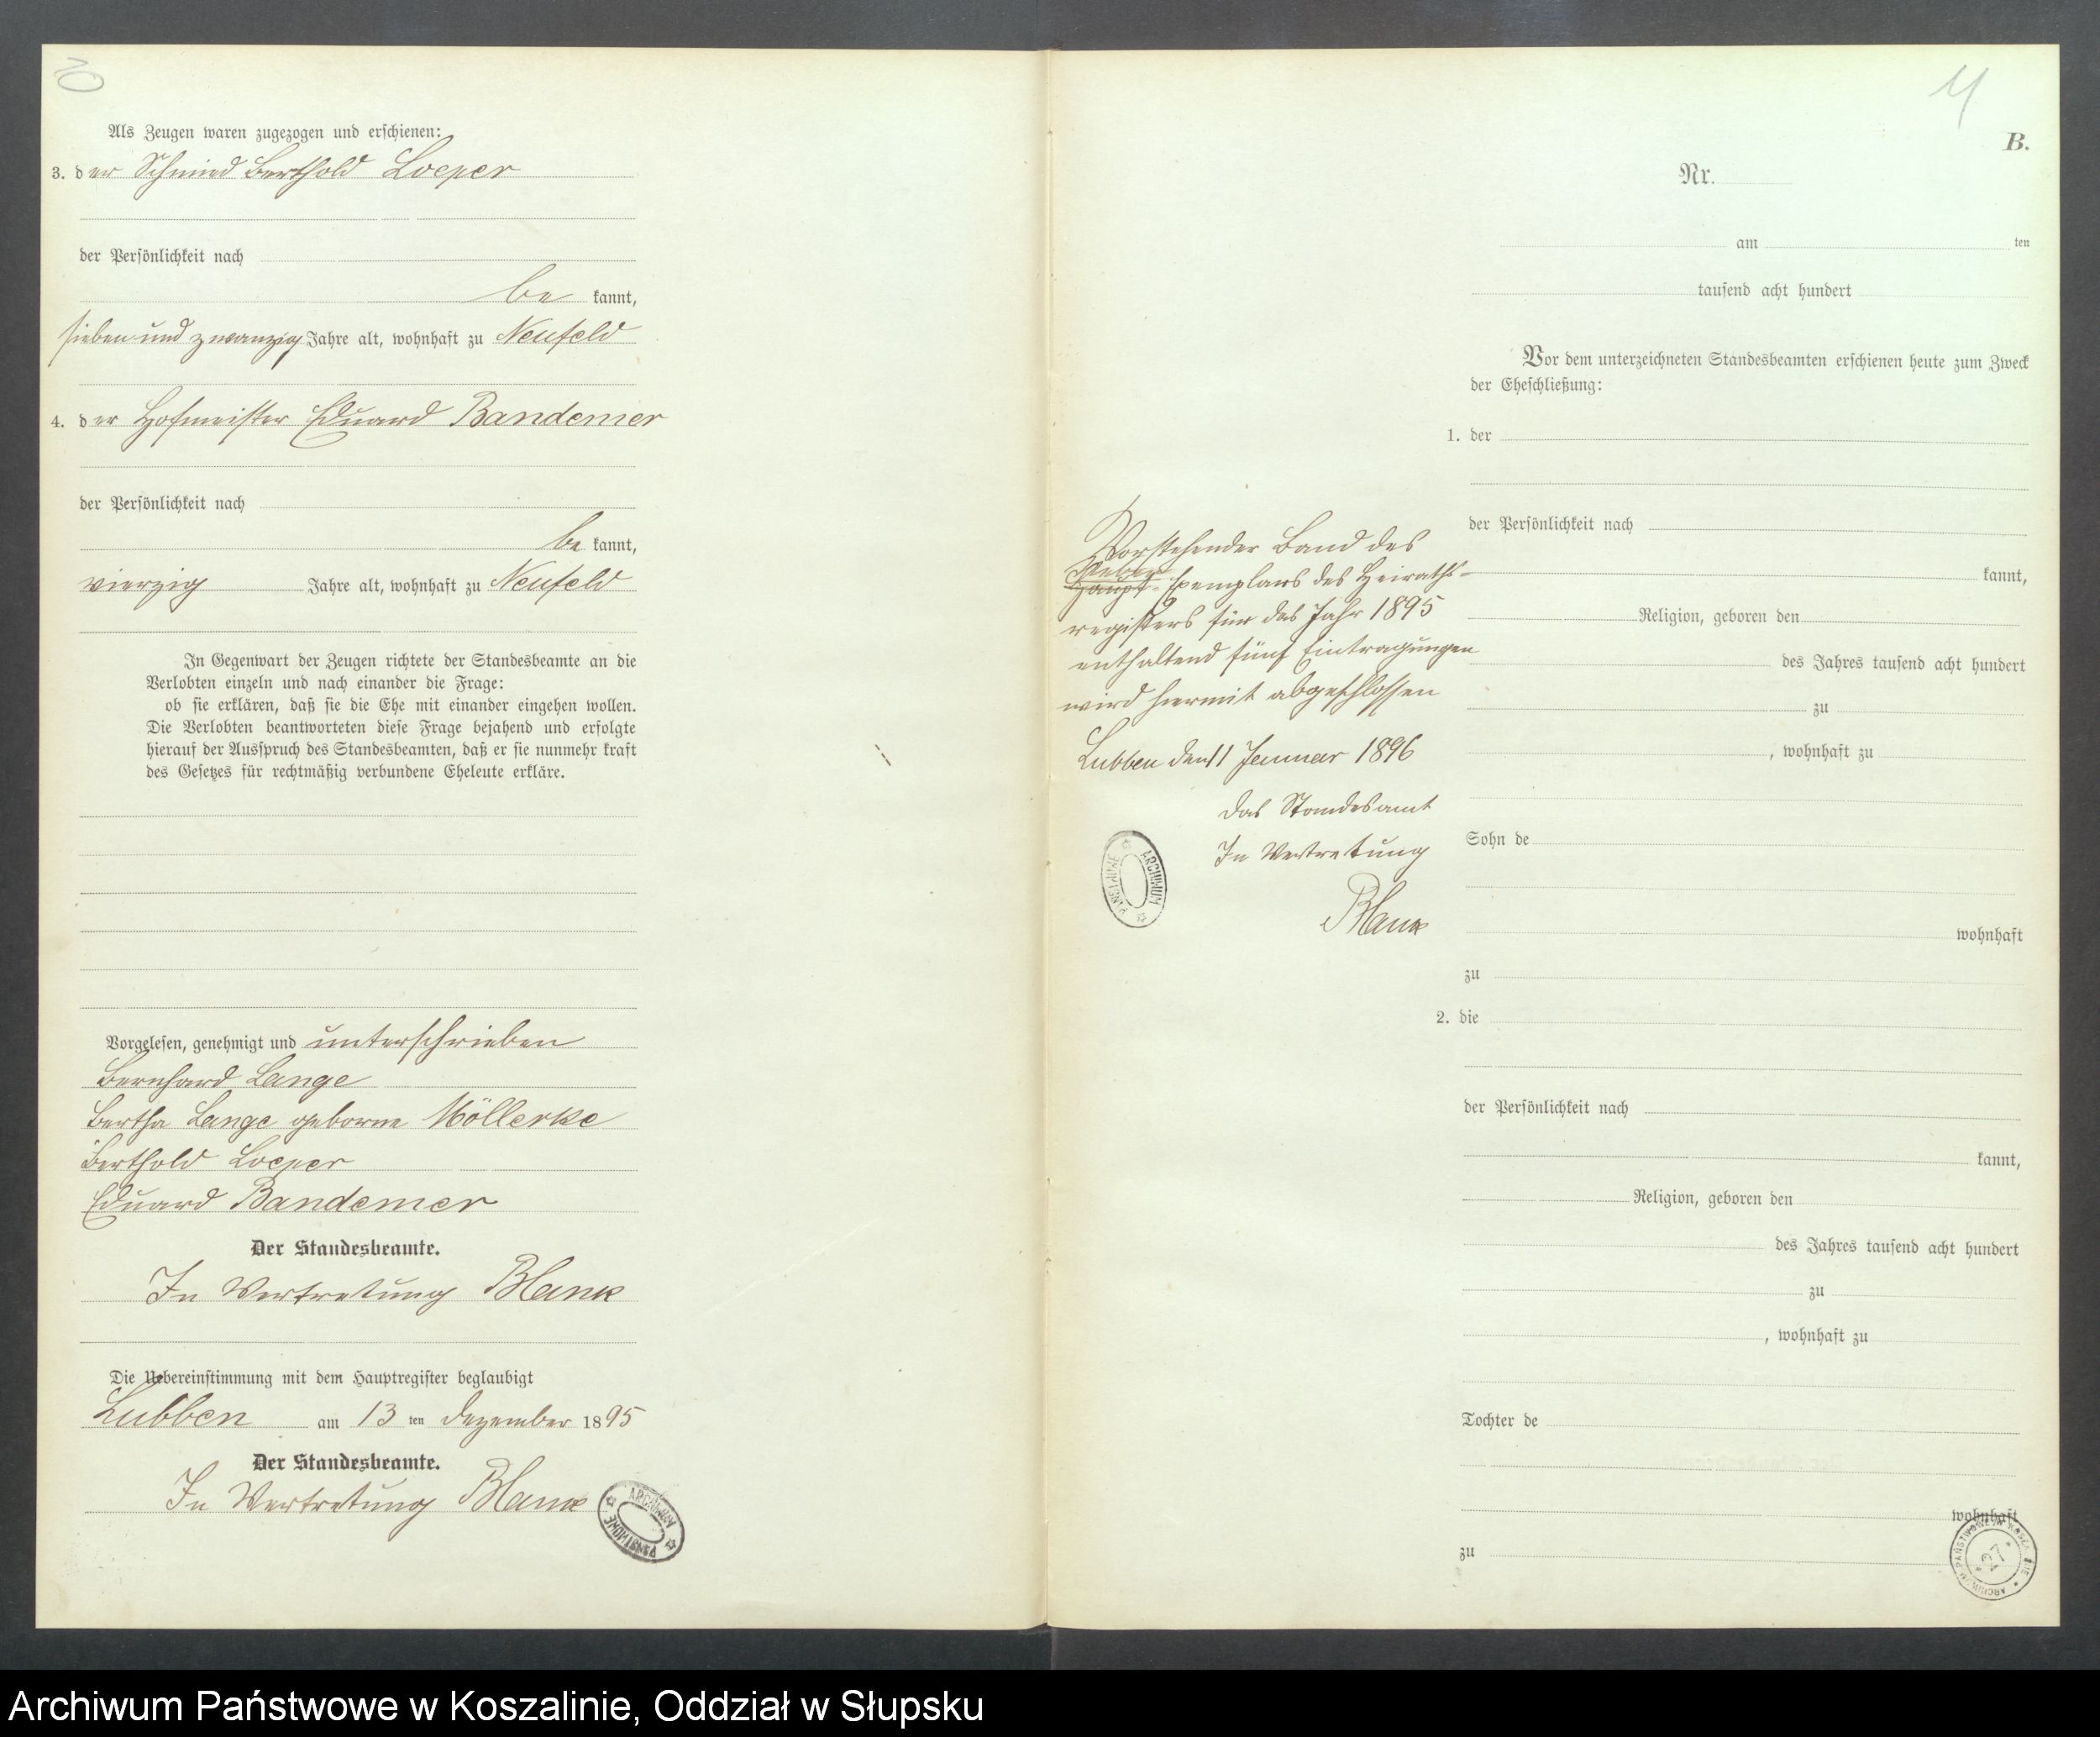 Als Zeugen waren zugezogen und erschienen:
3. der Schmied Berthold Loeper
der Persönlichkeit nach
be kannt,
sieben und zwanzig Jahre alt, wohnhaft zu Neufeld
4. der Hofmeister Eduard Bandemer
der Persönlichkeit nach
be kannt,
vierzig Jahre alt, wohnhaft zu Neufeld
In Gegenwart der Zeugen richtete der Standesbeamte an die
Verlobten einzeln und nach einander die Frage:
ob sie erklären, daß sie die Ehe mit einander eingehen wollen.
Die Verlobten beantworteten diese Frage bejahend und erfolgte
hierauf der Ausspruch des Standesbeamten, daß er sie nunmehr kraft
des Gesetzes für rechtmäßig verbundene Eheleute erkläre.
Vorgelesen, genehmigt und unterschrieben
Bernhard Lange
Bertha Lange geborne Möllerke
Berthold Loeper
Eduard Bandemer
Der Standesbeamte.
In Vertretung Blank
Die Uebereinstimmung mit dem Hauptregister beglaubigt
Lubben am 13 ten Dezember 1895
Der Standesbeamte.
In Vertretung Blank
ARCHIWUM PAŃSTWOWE
Vorstehender Band des
Neben
Haupt-Exemplars des Heiraths-
registers für das Jahr 1895
enthaltend fünf Eintragungen
wird hiermit abgeschlossen
Lubben den 11 Januar 1896
Das Standesamt
In Vertretung
Blank
ARCHIWUM PAŃSTWOWE
B.
Nr.
am ten
tausend acht hundert
Vor dem unterzeichneten Standesbeamten erschienen heute zum Zweck
der Eheschließung:
1. der
der Persönlichkeit nach
kannt,
Religion, geboren den
des Jahres tausend acht hundert
zu
, wohnhaft zu
Sohn de
wohnhaft
zu
2. die
der Persönlichkeit nach
kannt,
Religion, geboren den
des Jahres tausend acht hundert
zu
, wohnhaft zu
Tochter de
wohnhaft
zu
27
Archiwum Państwowe w Koszalinie, Oddział w Słupsku